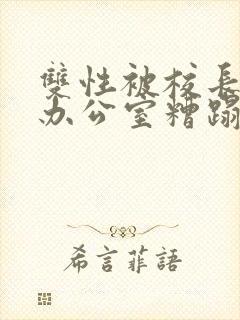 雙性被校長
办公室糟蹋
希言菲語